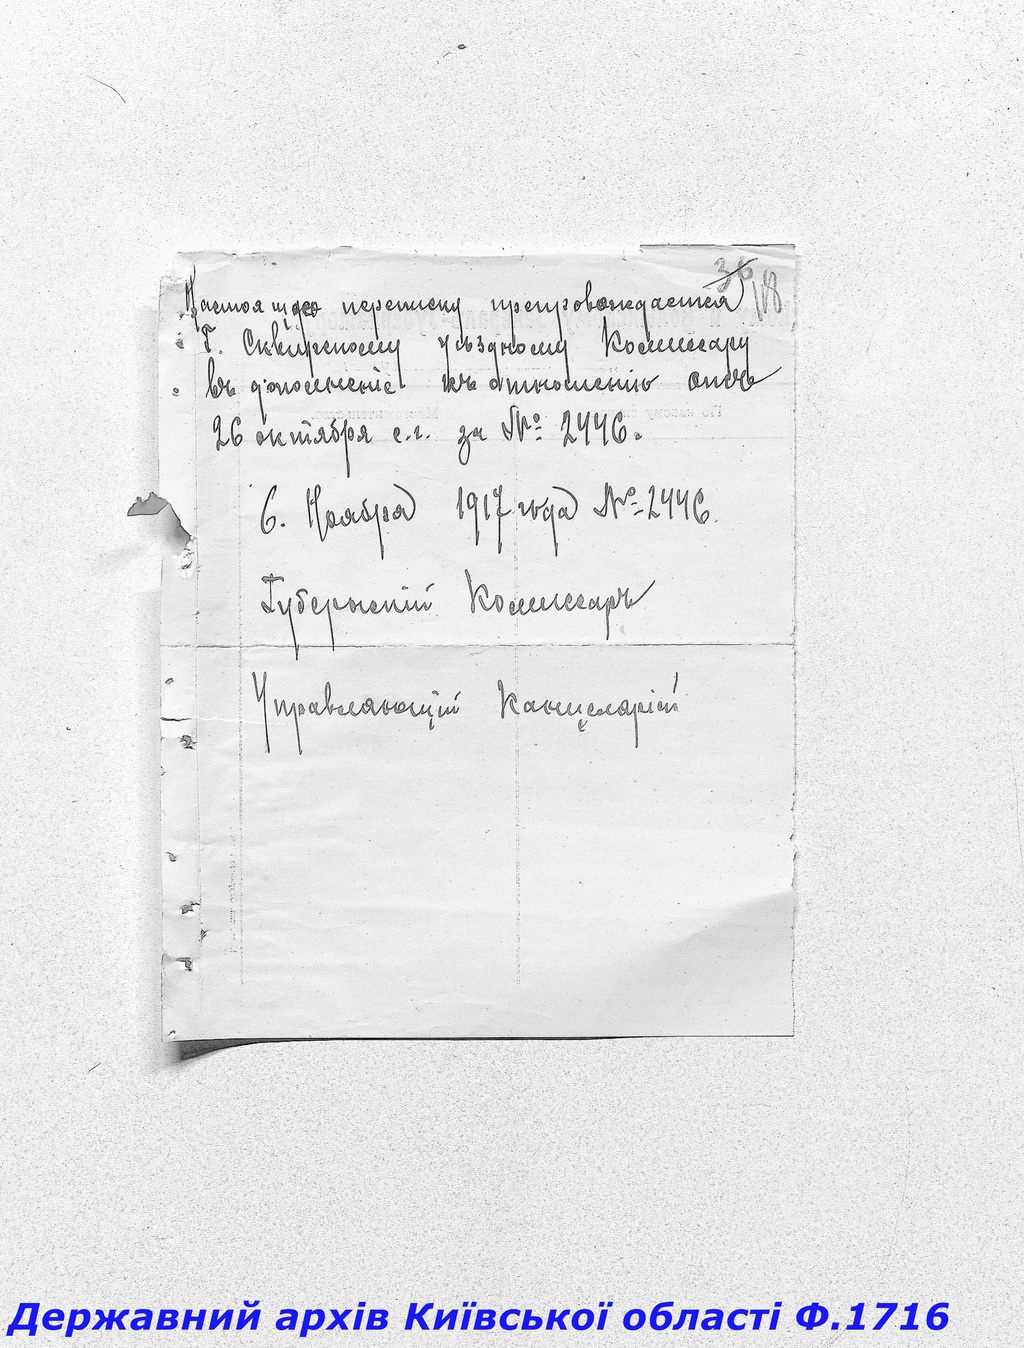 36
118
Настоящую переписку препровождается
Г. Сквирскому уѣздному Комиссару
въ дополненіе къ отношенію отъ
26 октября с.г. за № 2446.
6. Ноября 1917 года № 2446.
Губернскій Комиссаръ
Управляющій Канцеляріей
Державний архів Київської області Ф.1716